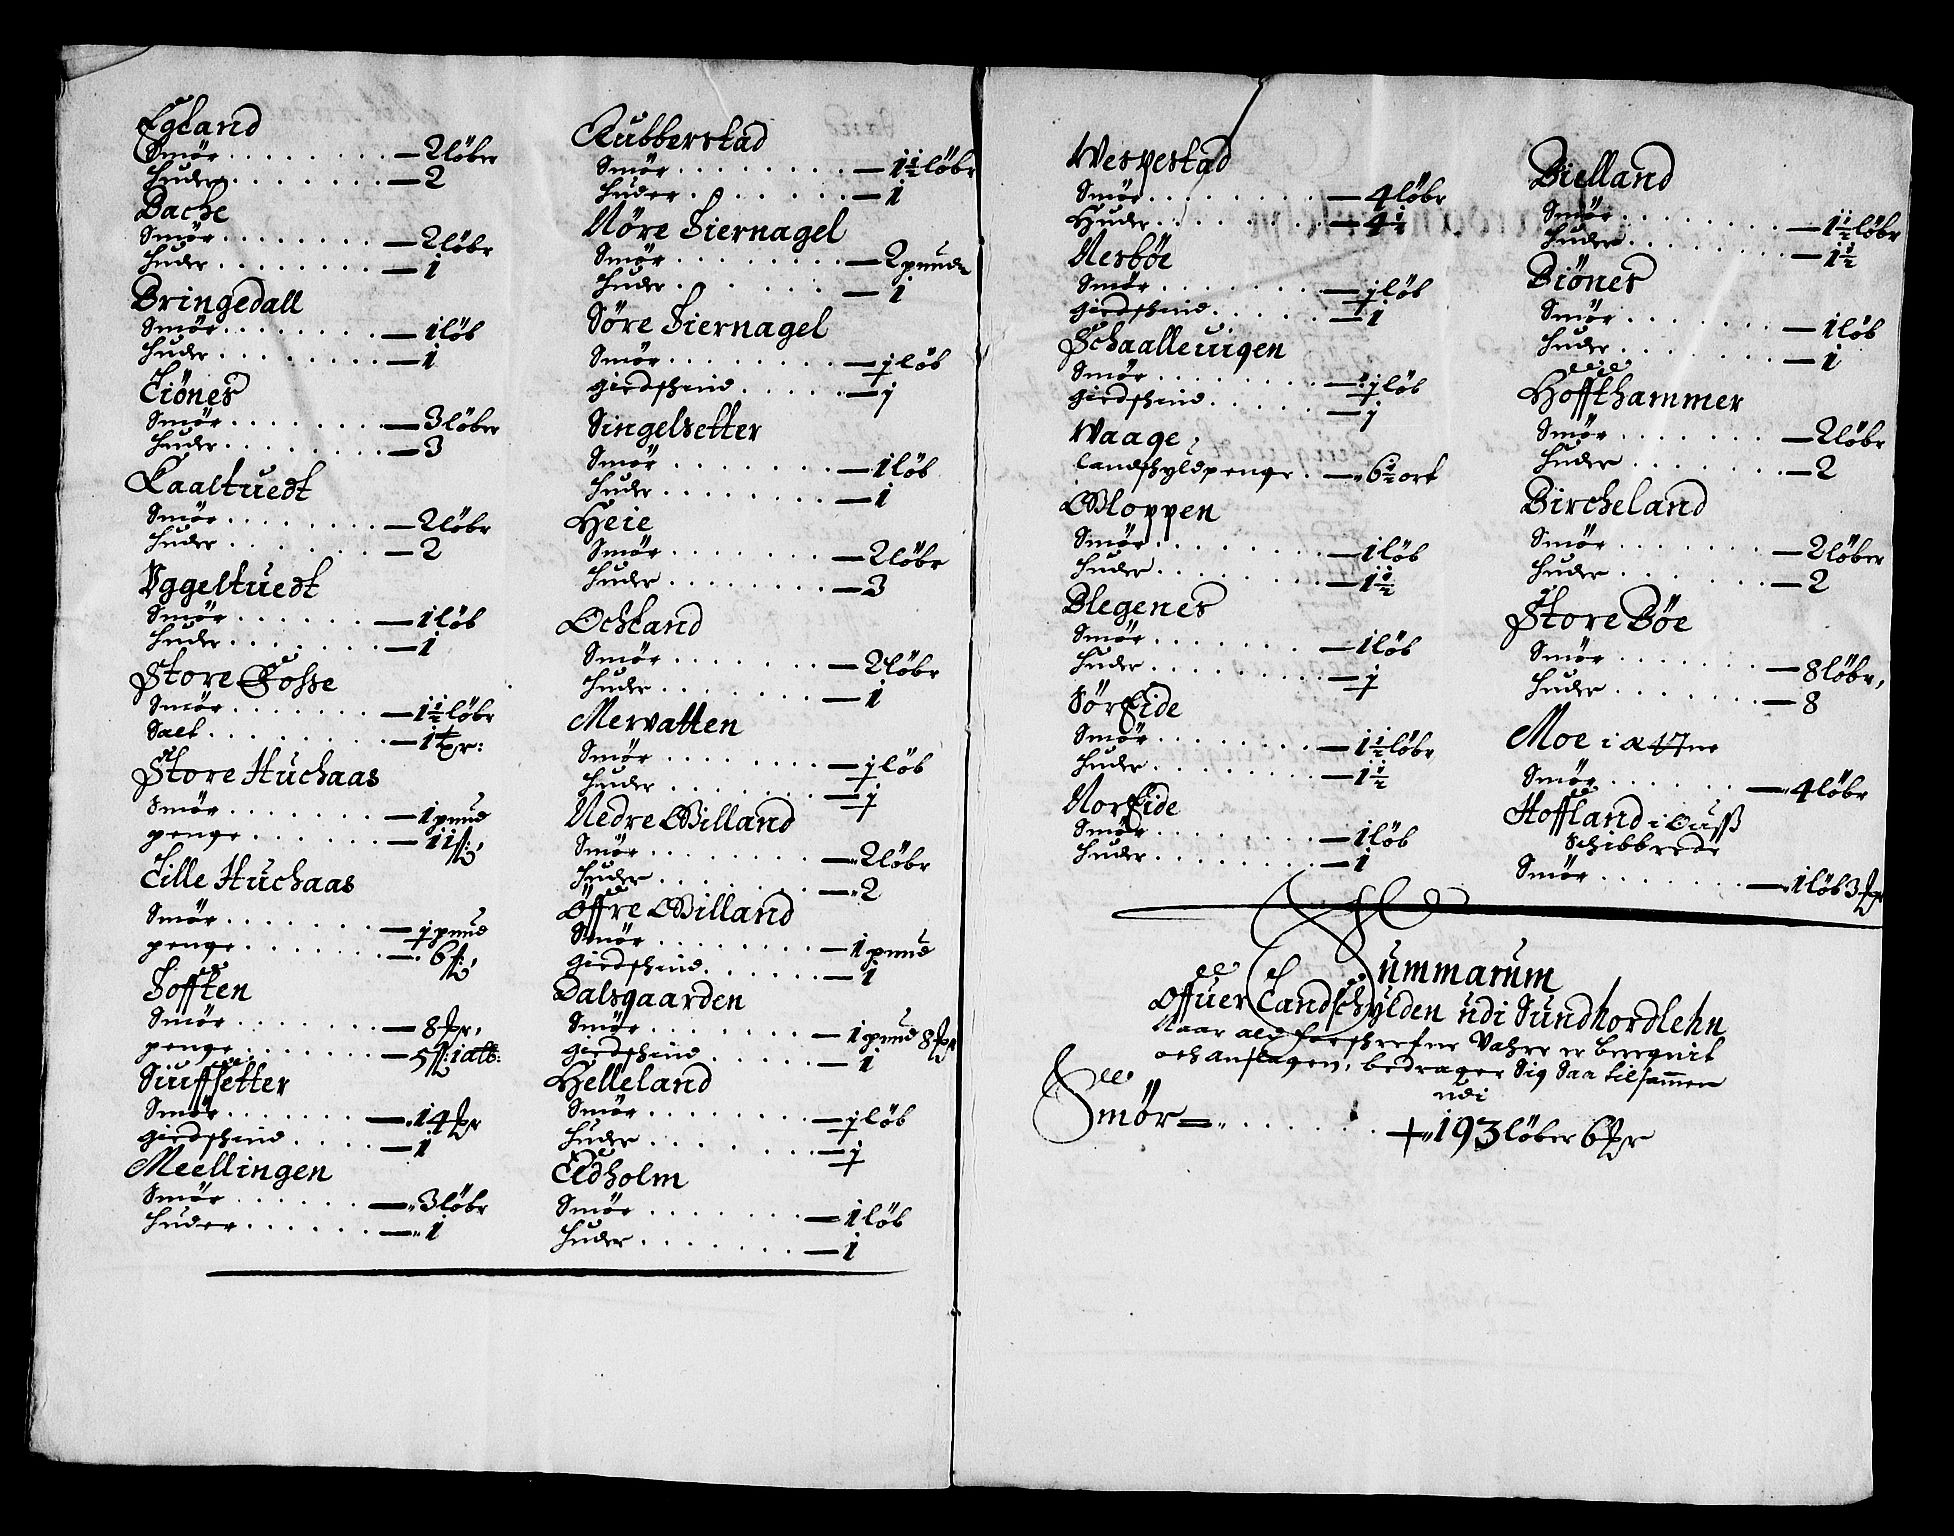 Egeland
Smör — 2 löber
Huder — 2
Bache
Smör — 2 löbr
Huder — 1
Bringedall
Smör — 1 löb
Huder — 1
Tiönes
Smör — 3 löber
Huder — 3
Kaaltuedt
Smör — 2 löbr
Huder — 2
Yggeltuedt
Smör — 1 löb
Huder — 1
Store Gosse
Smör — 1½ löbr
Salt — 1 tr:
Store Huchaas
Smör — 1 pund
penge — 11 ß
Lille Huchaas
Smör — ½ pund
penge — 6 ß
Tofften
Smör — 8 pr
penge — 5 ß: 1 alb:
Siuffsetter
Smör — 14 pr
giedschind — 1
Meellingen
Smör — 3 löbr
Huder — 1
Rubberstad
Smör — 1½ löbr
Huder — 1
Nöre Tiernagel
Smör — 2 pund
Huder — 1
Söre Tiernagel
Smör — ½ löb
giedschind — 1
Singelsetter
Smör — 1 löb
Huder — 1
Heie
Smör — 2 löbr
Huder — 3
Ochland
Smör — 2 löbr
Huder — 1
Mervatten
Smör — ½ löb
Huder — ½
Nedre Billand
Smör — 2 löbr
Huder — 2
Öffre Billand
Smör — 1 pund
giedschind — 1
Dalsgaarden
Smör — 1 pund 8 pr
giedschind — 1
Helleland
Smör — ½ löb
Huder — ½
Eldholm
Smör — 1 löb
Huder — 1
Wespestad
Smör — 4 löbr
Huder — 4½
Nesböe
Smör — ½ löb
giedschind — 1
Schaalleuiigen
Smör — ½ löb
giedschind — 1
Waage
landschyldpenge — 6½ ort
Gloppen
Smör — 1 löb
Huder — 1½
Blegenes
Smör — 1 löb
Huder — ½
Sör Eide
Smör — 1½ löbr
Huder — 1½
Nor Eide
Smör — 1 löb
Huder — 1
Bielland
Smör — 1½ löbr
Huder — 1½
Biönes
Smör — 1 löb
Huder — 1
Hoffthammer
Smör — 2 löbr
Huder — 2
Bircheland
Smör — 2 löber
Huder — 2
Store Böe
Smör — 8 löbr,
Huder — 8
Moe i
Smör — 4 löbr
Hoffland i
Schibbrede
Smör — 1 löb 3 pr
Summarum
Offuer Landschylden udi Sundhordlehn
Naar ald forschrefne Vahre er beregnit
och anslagen, bedrager Sig Saa tilsammen
udi
Smör — 193 löber 6 pr